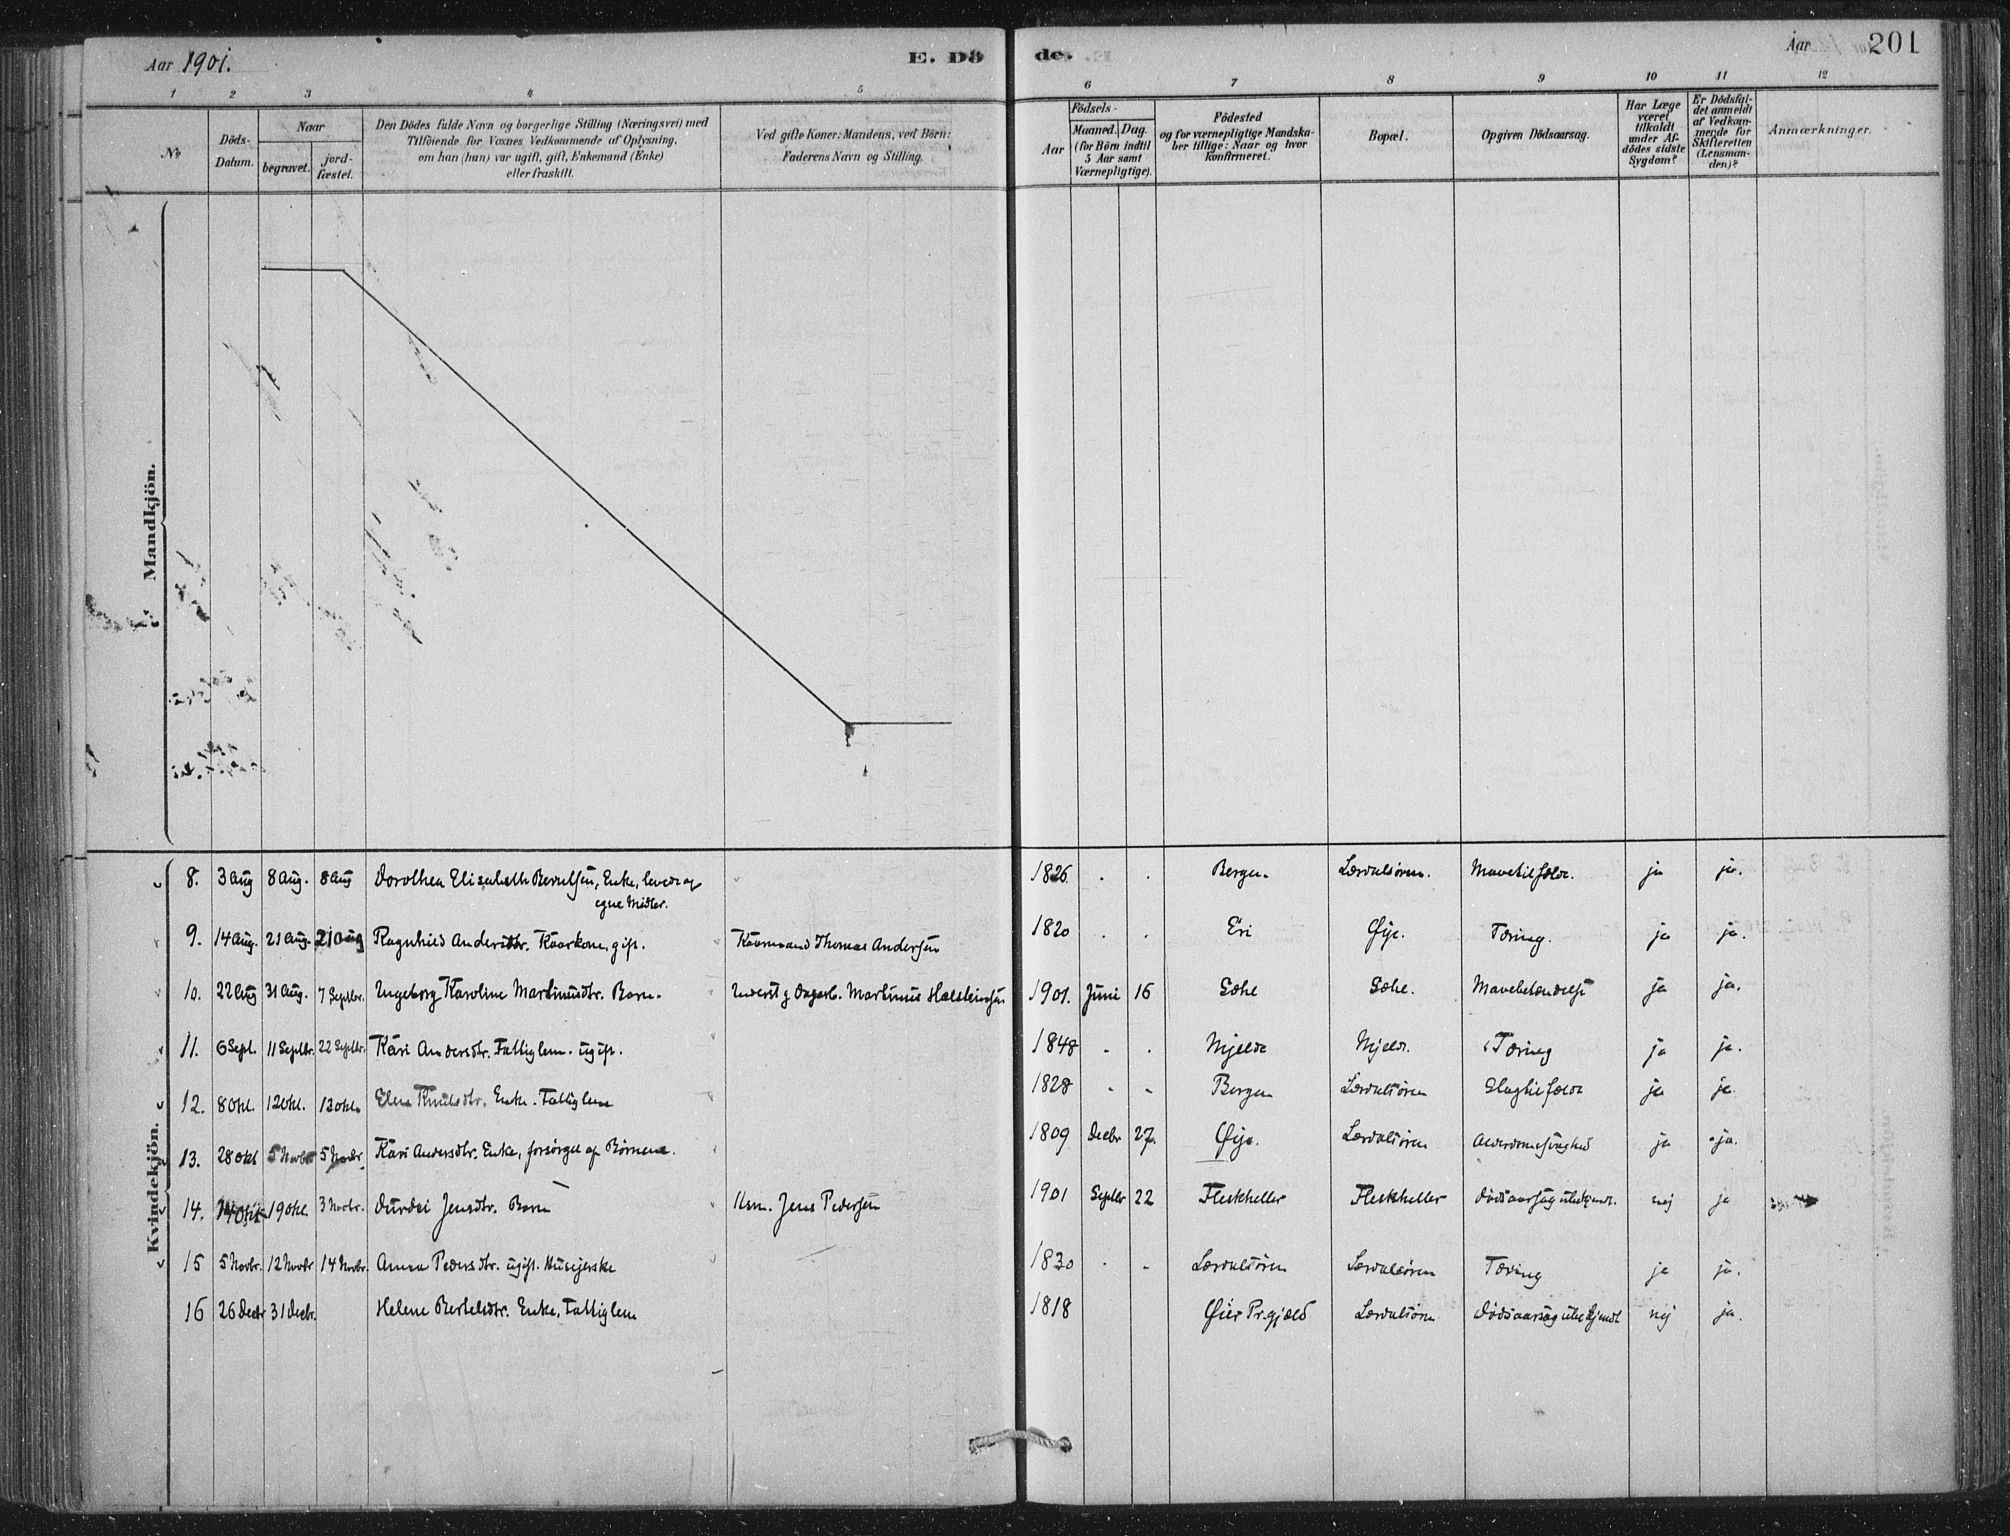 Aar 1901.
E. Dö
de.
Aar
201
1 2 3 4 5 6 7 8 9 10 11 12
No
Döds-
Datum.
Naar
begravet.
jord-
fæstet.
Den Dödes fulde Navn og borgerlige Stilling (Næringsvei) med
Tilföiende for Voxnes Vedkommende af Oplysning,
om han (hun) var ugift, gift, Enkemand (Enke)
eller fraskilt.
Ved gifte Koner: Mandens, ved Börn:
Faderens Navn og Stilling.
Födsels-
Aar
Maaned.
Dag.
(for Börn indtil
5 Aar samt
Værnepligtige).
Födested
og for værnepligtige Mandska-
ber tillige: Naar og hvor
konfirmeret.
Bopæl.
Opgiven Dödsaarsag.
Har Læge
været
tilkaldt
under Af-
dödes sidste
Sygdom?
Er Dödsfal-
det anmeldt
af Vedkom-
mende for
Skifteretten
(Lensman-
den)?
Anmærkninger.
Mandkjön.
Kvindekjön.
8. 3 Aug 8 Aug. 8 Aug Dorothea Elisabeth Enke, lever af 1826 . . Bergen Lærdalsören. Mavetilfælde. ja ja.
egne Midler.
9. 14 Aug. 21 Aug. 21 Aug Ragnhild Andersdtr. Kaarkone, gift. Kaarmand Thomas Andersen 1820 . . Eri Øye. Tæring. ja ja.
10. 22 Aug 31 Aug. 7 Septbr. Ingeborg Karoline Martinusdtr. Barn. Martinus Halsteinsen 1901. Juni 16 Sæhe. Mavebetændelse ja ja.
11. 6 Sept. 11 Septbr. 22 Septbr. Kari Andersdtr. Fattiglem. ugift. 1848 . . Mjelde Mjelde. Tæring ja ja.
12. 8 Okt. 12 Okt. 13 Okt. Knutsdtr. Enke. Fattiglem 1828 . . Bergen Lærdalsören Slagtilfælde ja ja
13. 28 Okt 5 Novbr 5 Novbr. Kari Andersdtr. Enke, forsörget af Börnene. 1809 Decbr 27. Øye. Lærdalsören Alderdomssvaghed ja ja.
14. 14 Okt 19 Okt. 3 Novbr. Durdei Jensdtr. Barn Jens Pedersen 1901 Septbr 22 Fleskheller Fleskheller Dödsaarsag ubekjendt. nej ja
15 5 Novbr. 12 Novbr 14 Novbr. Anna Pedersdtr. ugift. Husejerske 1830 . . Lærdalsören Lærdalsören Tæring ja ja.
16 26 Decbr 31 Decbr. Helene Bertelsdtr. Enke, Fattiglem 1818 Øier Pr.gjæld Lærdalsören Dödsaarsag ubekjendt nej ja.